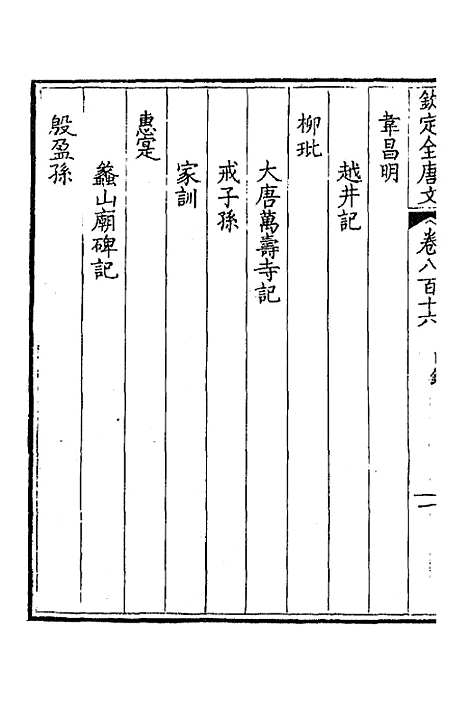 欽定全唐文
卷八百十六
韋昌明
越井記
柳玭
大唐萬壽寺記
戒子孫
家訓
惠寔
蠡山廟碑記
殷盈孫